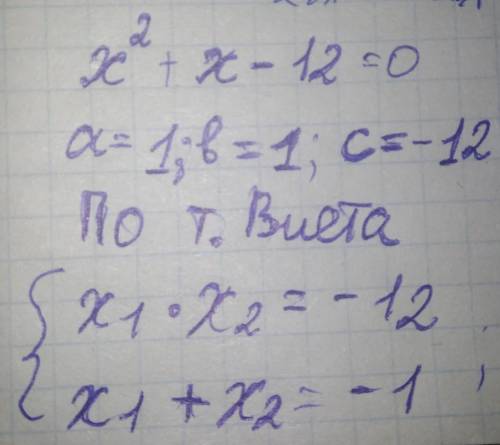 x² + x - 12 = 0
a = 1; в = 1; c = -12
По т. Виета
{ x1 · x2 = -12
x1 + x2 = -1